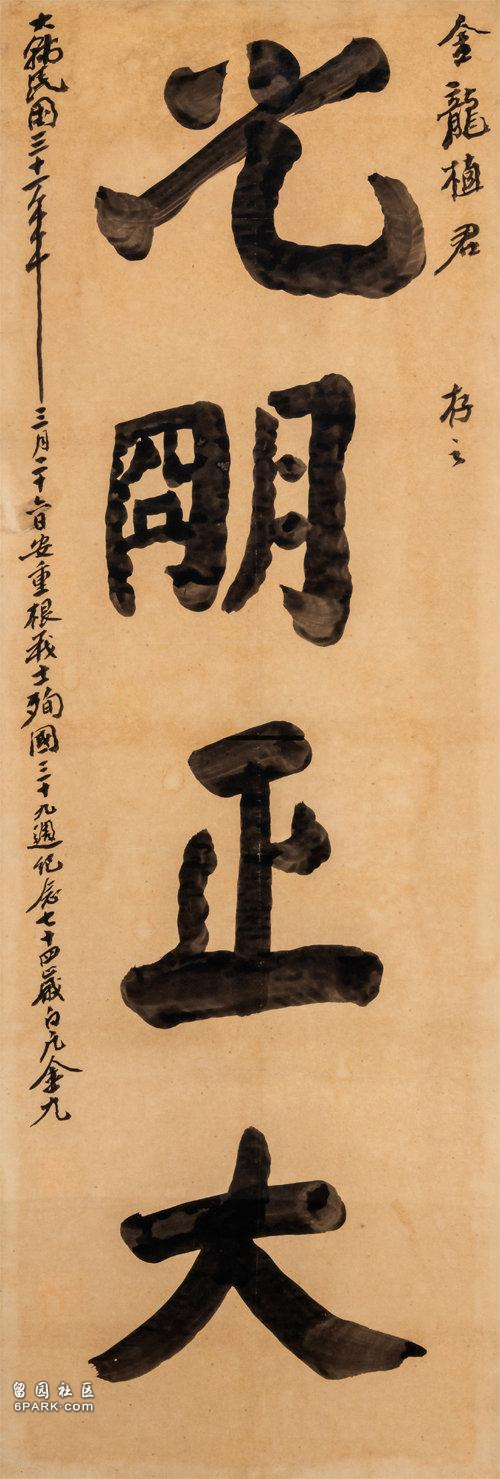 金龍植君 存之
光朙正大
大韓民國三十一年三月二十六日安重根義士殉國三十九週紀念七十四歲白凡金九
留园社区
6PARK.COM